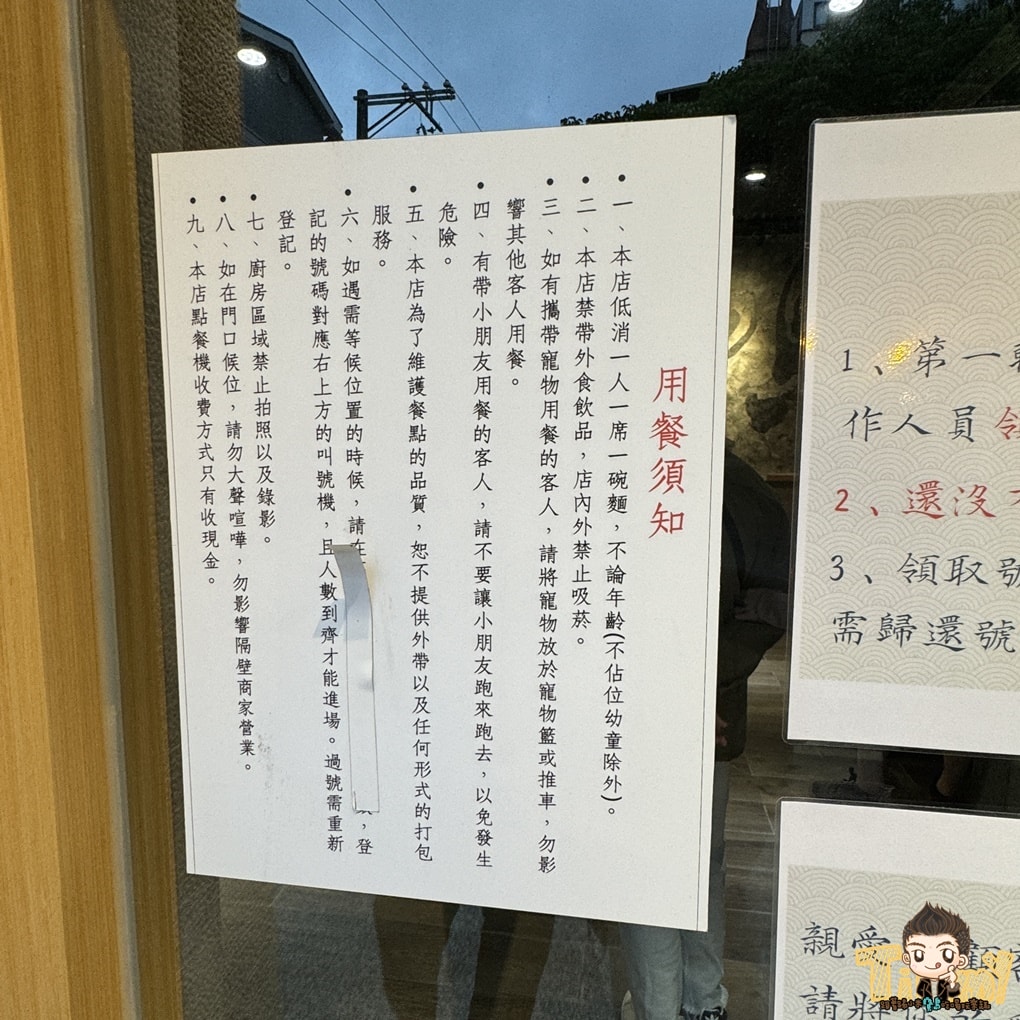 用餐須知
•一、本店低消一人一席一碗麵，不論年齡(不佔位幼童除外)。
•二、本店禁帶外食飲品，店內外禁止吸菸。
•三、如有攜帶寵物用餐的客人，請將寵物放於寵物籃或推車，勿影
響其他客人用餐。
•四、有帶小朋友用餐的客人，請不要讓小朋友跑來跑去，以免發生
危險。
•五、本店為了維護餐點的品質，恕不提供外帶以及任何形式的打包
服務。
•六、如遇需等候位置的時候，請在，登
記的號碼對應右上方的叫號機，且人數到齊才能進場。過號需重新
登記。
•七、廚房區域禁止拍照以及錄影。
•八、如在門口候位，請勿大聲喧嘩，勿影響隔壁商家營業。
•九、本店點餐機收費方式只有收現金。
1、第一
作人員
2、還沒
3、領取號
需歸還號
親愛
顧客
請將